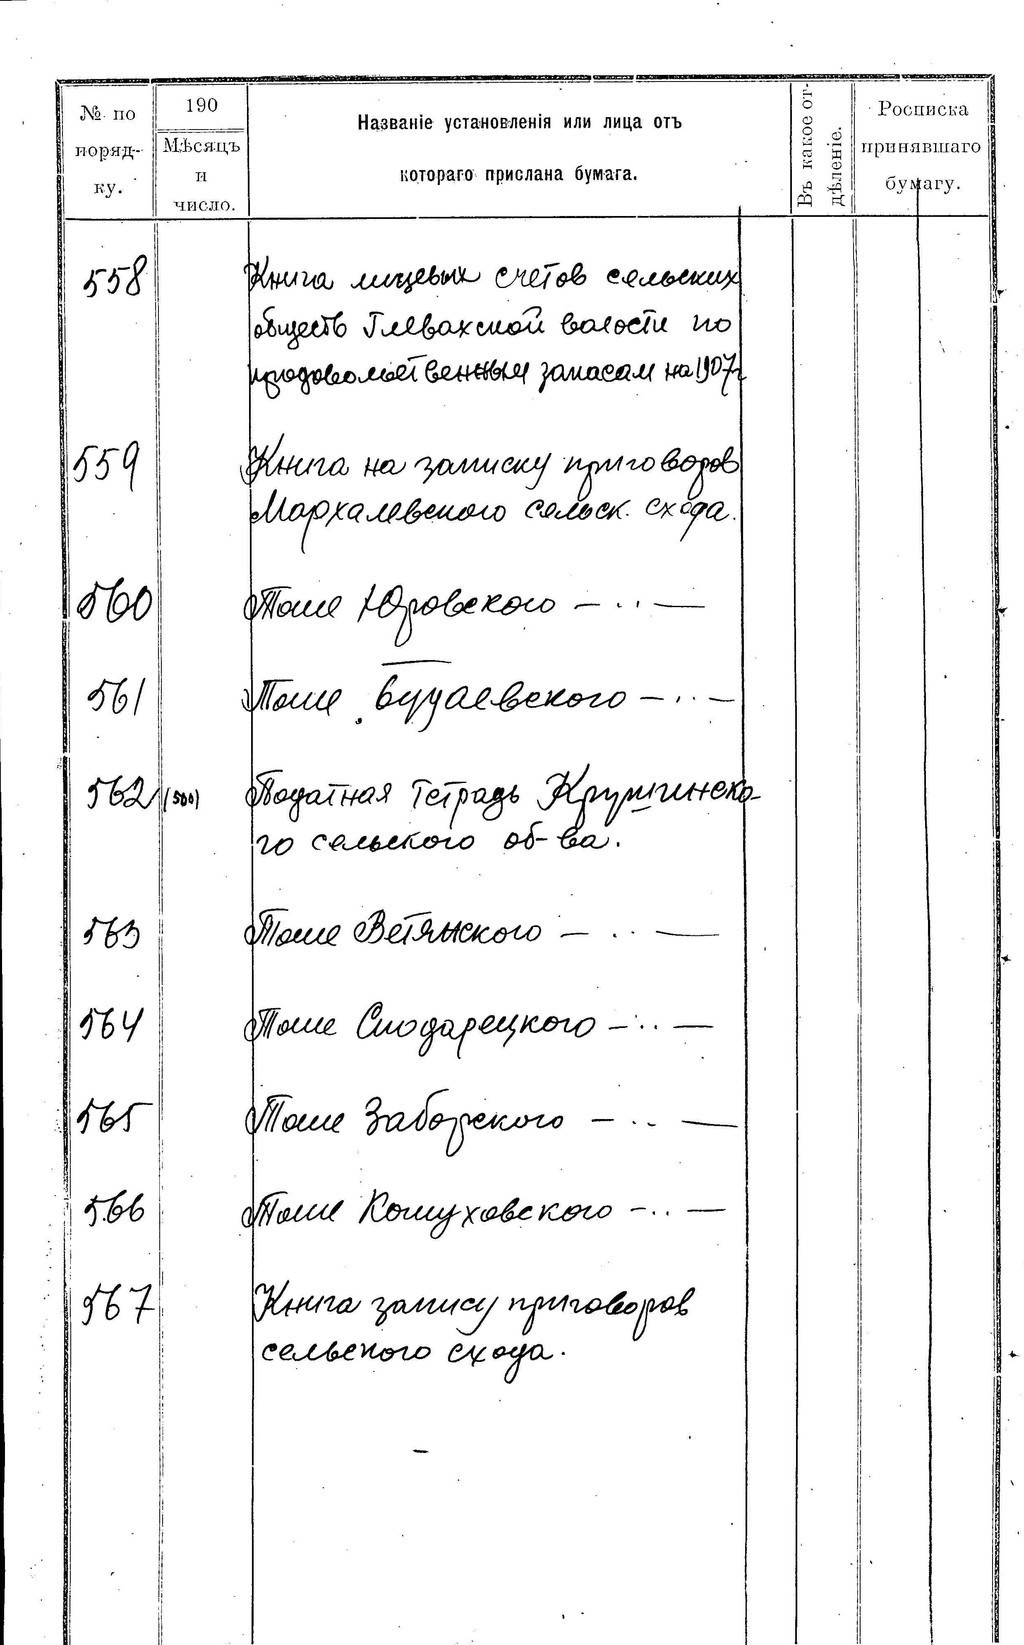 № по
поряд-
ку.
190
Мѣсяцъ
и
число.
Названіе установленія или лица отъ
котораго прислана бумага.
Въ какое от-
дѣленіе.
Росписка
принявшаго
бумагу.
558 Книга лицевых счетов сельских
обществ Глевахской волости по
продовольственным запасам на 1907 г.
559 Книга на записку приговоров
Мархалевского сельск. схода.
560 Тоже Юровского — ·· —
561 Тоже Будаевского — ·· —
562 (500) Податная тетрадь Кружгинско-
го сельского об-ва.
563 Тоже Ветянского — ·· —
564 Тоже Сподарецкого — ·· —
565 Тоже Заборского — ·· —
566 Тоже Кожуховского — ·· —
567 Книга запису приговоров
сельского схода.